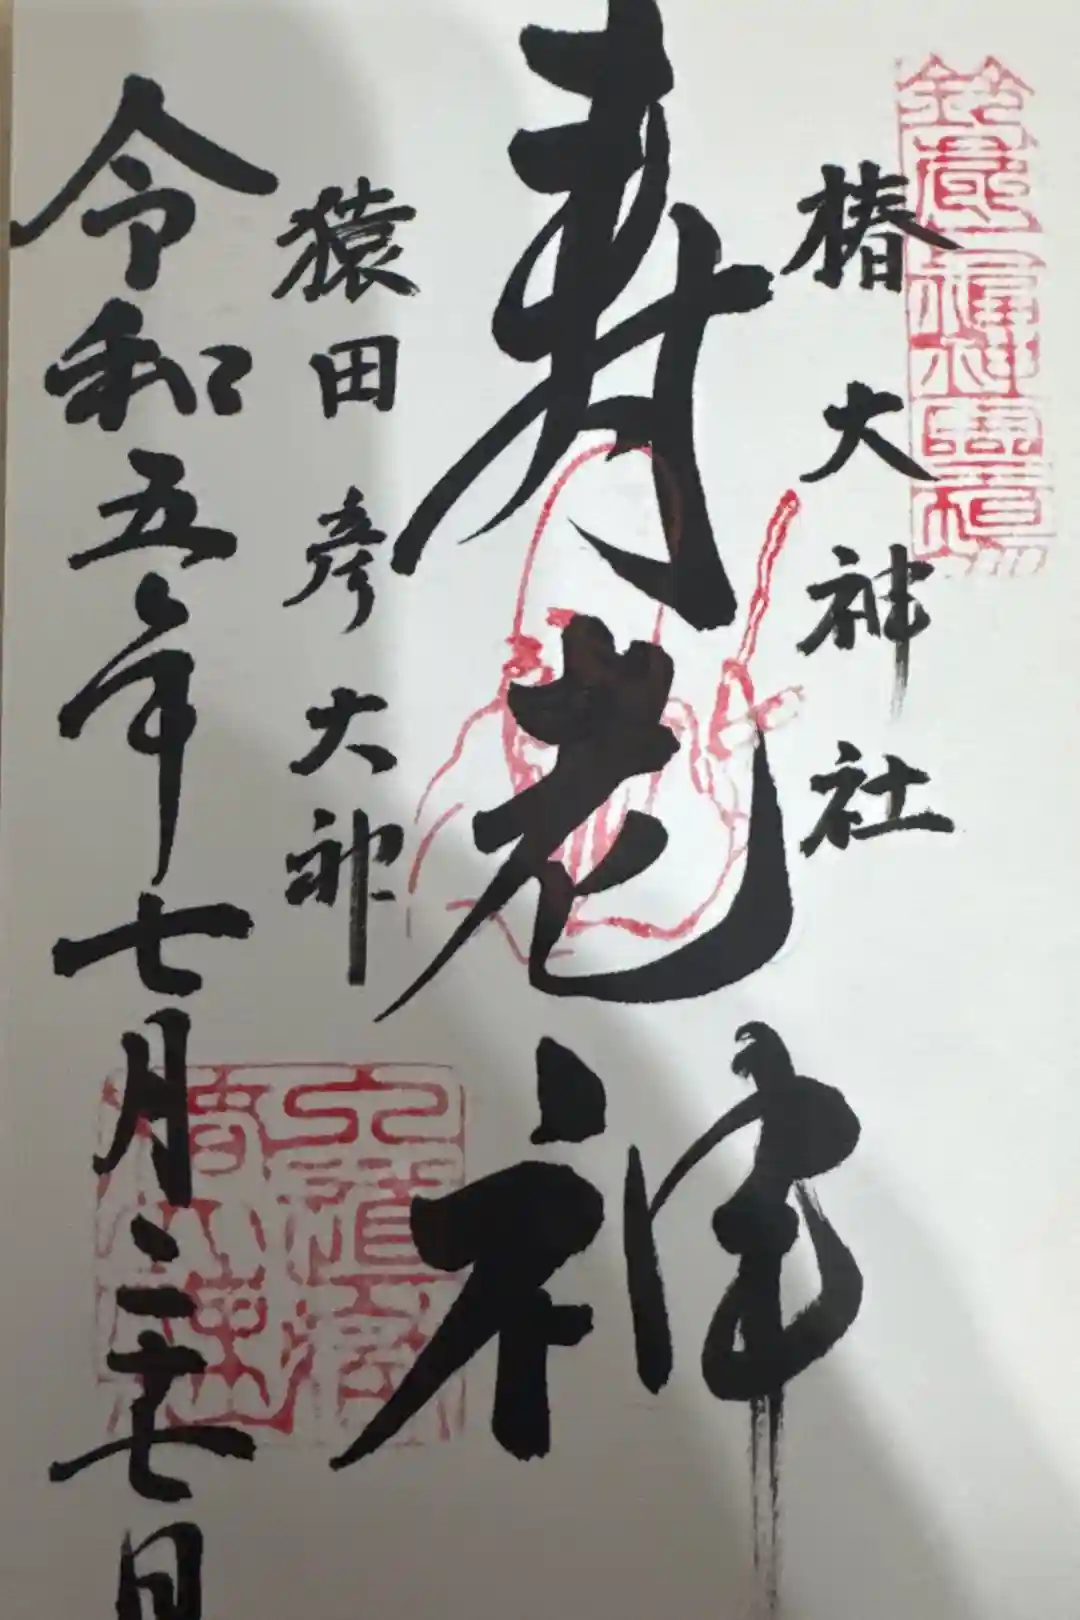 椿大神社
寿老神
猿田彦大神
令和五年七月二十七日